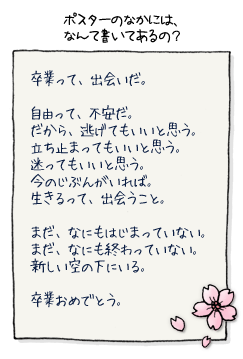 ポスターのなかには、
なんて書いてあるの？
卒業って、出会いだ。
自由って、不安だ。
だから、逃げてもいいと思う。
立ち止まってもいいと思う。
迷ってもいいと思う。
今のじぶんがいれば。
生きるって、出会うこと。
まだ、なにもはじまっていない。
まだ、なにも終わっていない。
新しい空の下にいる。
卒業おめでとう。